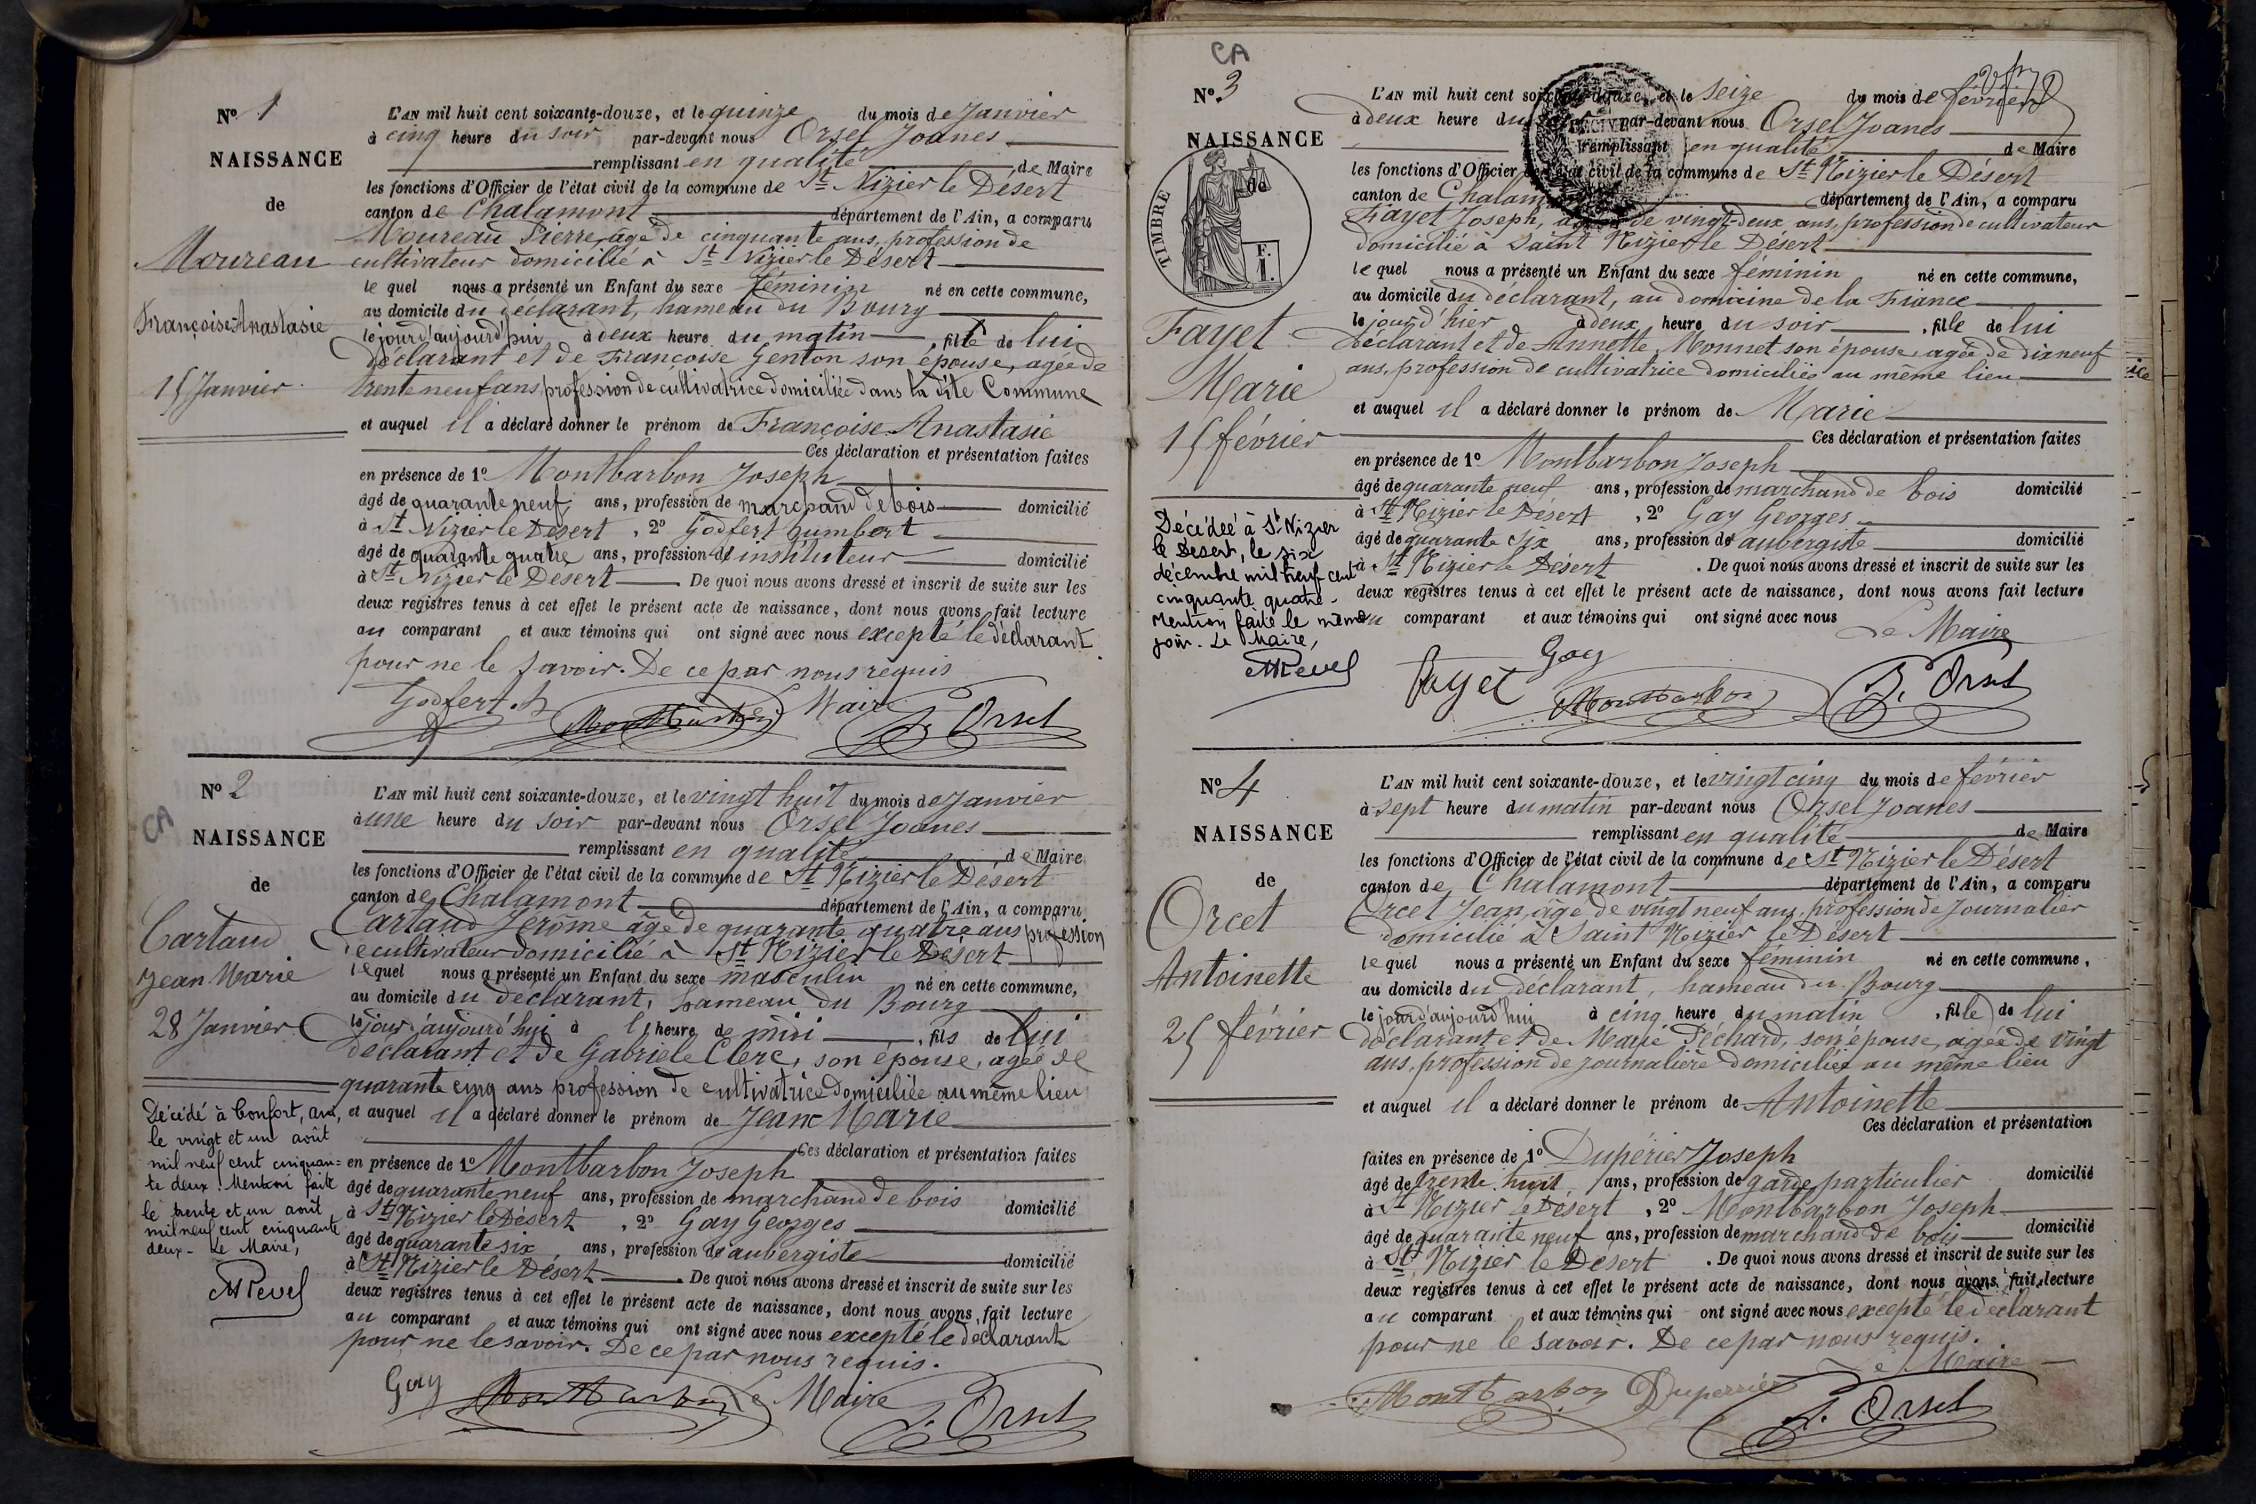 Nº 1
NAISSANCE
de
Moureau
Françoise-Anastasie
15 Janvier
L'AN mil huit cent soixante-douze, et le quinze du mois de Janvier
à cinq heure du soir par-devant nous Orsel Joanes
remplissant en qualité de Maire
les fonctions d'Officier de l'état civil de la commune de St Nizier le Désert
canton de Chalamont département de l'Ain, a comparu
Moureau Pierre, âgé de cinquante ans, profession de
cultivateur domicilié à St Nizier le Désert
le quel nous a présenté un Enfant du sexe féminin né en cette commune,
au domicile du déclarant, hameau du Bourg
le jour d'aujourd'hui à deux heure du matin, fille de lui
déclarant et de Françoise Genton son épouse, agée de
trente neuf ans profession de cultivatrice domiciliée dans la dite Commune
et auquel il a déclaré donner le prénom de Françoise Anastasie
Ces déclaration et présentation faites
en présence de 1º Montbarbon Joseph
âgé de quarante neuf ans, profession de marchand de bois domicilié
à St Nizier le Désert, 2º Godfert humbert
âgé de quarante quatre ans, profession de instituteur domicilié
à St Nizier le Désert. De quoi nous avons dressé et inscrit de suite sur les
deux registres tenus à cet effet le présent acte de naissance, dont nous avons fait lecture
au comparant et aux témoins qui ont signé avec nous excepté le déclarant
pour ne le savoir. De ce par nous requis
Godfert. h Montbarbon Maire J. Orsel
Nº 2
CA
NAISSANCE
de
Cartaud
Jean Marie
28 Janvier
Décédé à Confort, ain,
le vingt et un août
mil neuf cent cinquan=
te deux. Mention faite
le trente et un août
mil neuf cent cinquante
deux - Le Maire,
MRevel
L'AN mil huit cent soixante-douze, et le vingt huit du mois de Janvier
à une heure du soir par-devant nous Orsel Joanes
remplissant en qualité de Maire
les fonctions d'Officier de l'état civil de la commune de St Nizier le Désert
canton de Chalamont département de l'Ain, a comparu
Cartaud Jerôme âgé de quarante quatre ans profession
de cultivateur domicilié à St Nizier le Désert
le quel nous a présenté un Enfant du sexe masculin né en cette commune,
au domicile du déclarant, hameau du Bourg
le jour d'aujourd'hui à l' heure de midi, fils de lui
déclarant et de Gabriele Clerc, son épouse, agée de
quarante cinq ans profession de cultivatrice domiciliée au même lieu
et auquel il a déclaré donner le prénom de Jean Marie
Ces déclaration et présentation faites
en présence de 1º Montbarbon Joseph
âgé de quarante neuf ans, profession de marchand de bois domicilié
à St Nizier le Désert, 2º Gay Georges
âgé de quarante six ans, profession de aubergiste domicilié
à St Nizier le Désert. De quoi nous avons dressé et inscrit de suite sur les
deux registres tenus à cet effet le présent acte de naissance, dont nous avons fait lecture
au comparant et aux témoins qui ont signé avec nous excepté le déclarant
pour ne le savoir. De ce par nous requis.
Gay Montbarbon Le Maire J. Orsel
CA
Nº 3
NAISSANCE
de
TIMBRE
F.
1.
Fayet
Marie
15 février
Décédée à St Nizier
le Desert, le six
décembre mil neuf cent
cinquante quatre -
Mention faite le même
jour. Le Maire,
MRevel
L'AN mil huit cent soixante-douze, et le seize du mois de février
à deux heure du soir par-devant nous Orsel Joanes
remplissant en qualité de Maire
les fonctions d'Officier de l'état civil de la commune de St Nizier le Désert
canton de Chalamont département de l'Ain, a comparu
Fayet Joseph, âgé de vingt-deux ans, profession de cultivateur
domicilié à Saint Nizier le Désert
le quel nous a présenté un Enfant du sexe féminin né en cette commune,
au domicile du déclarant, au domaine de la France
le jour d'hier à deux heure du soir, fille de lui
déclarant et de Annette Monnet son épouse, agée de dix neuf
ans, profession de cultivatrice domiciliée au même lieu
et auquel il a déclaré donner le prénom de Marie
Ces déclaration et présentation faites
en présence de 1º Montbarbon Joseph
âgé de quarante neuf ans, profession de marchand de bois domicilié
à St Nizier le Désert, 2º Gay Georges
âgé de quarante six ans, profession de aubergiste domicilié
à St Nizier le Désert. De quoi nous avons dressé et inscrit de suite sur les
deux registres tenus à cet effet le présent acte de naissance, dont nous avons fait lecture
au comparant et aux témoins qui ont signé avec nous
Le Maire
Fayet Gay Montbarbon J. Orsel
Nº 4
NAISSANCE
de
Orcet
Antoinette
25 février
L'AN mil huit cent soixante-douze, et le vingt cinq du mois de février
à sept heure du matin par-devant nous Orsel Joanes
remplissant en qualité de Maire
les fonctions d'Officier de l'état civil de la commune de St Nizier le Désert
canton de Chalamont département de l'Ain, a comparu
Orcet Jean, âgé de vingt neuf ans, profession de Journalier
domicilié à Saint Nizier le Désert
le quel nous a présenté un Enfant du sexe féminin né en cette commune,
au domicile du déclarant, hameau du Bourg
le jour d'aujourd'hui à cinq heure du matin, fille de lui
déclarant et de Marie Péchard, son épouse, agée de vingt
ans, profession de journalière domiciliée au même lieu
et auquel il a déclaré donner le prénom de Antoinette
Ces déclaration et présentation
faites en présence de 1º Dupérier Joseph
âgé de trente huit ans, profession de garde particulier domicilié
à St Nizier le Désert, 2º Montbarbon Joseph
âgé de quarante neuf ans, profession de marchand de bois domicilié
à St Nizier le Désert. De quoi nous avons dressé et inscrit de suite sur les
deux registres tenus à cet effet le présent acte de naissance, dont nous avons fait lecture
au comparant et aux témoins qui ont signé avec nous excepté le déclarant
pour ne le savoir. De ce par nous requis.
Le Maire
Montbarbon Duperrier J. Orsel